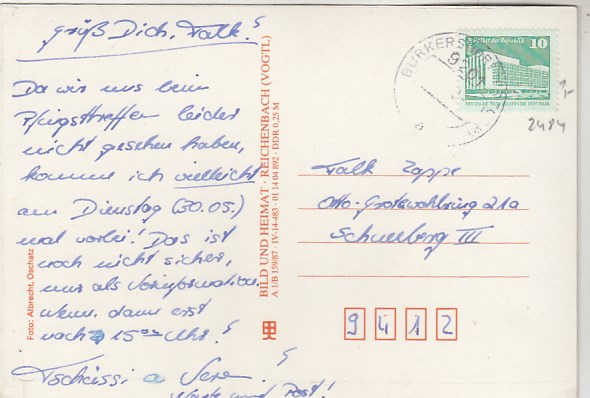 grüß Dich, Falk!
Da wir uns beim
Pfingsttreffen leider
nicht gesehen haben,
komme ich vielleicht
am Dienstag (30.05.)
mal vorbei! Das ist
noch nicht sicher,
nur als Vorinformation.
wenn, dann erst
nach 15⁰⁰ Uhr!
Tschüssi
Post!
Foto: Albrecht, Oschatz
BILD UND HEIMAT · REICHENBACH (VOGTL)
A 1/B 159/87 · IV-14-483 · 01 14 04 892 · DDR 0,25 M
BURKERSDORF
Palast der Republik 10
DEUTSCHE DEMOKRATISCHE REPUBLIK
1,-
2484
Falk Zappe
Otto-Grotewohlring 21a
Schneeberg III
9412